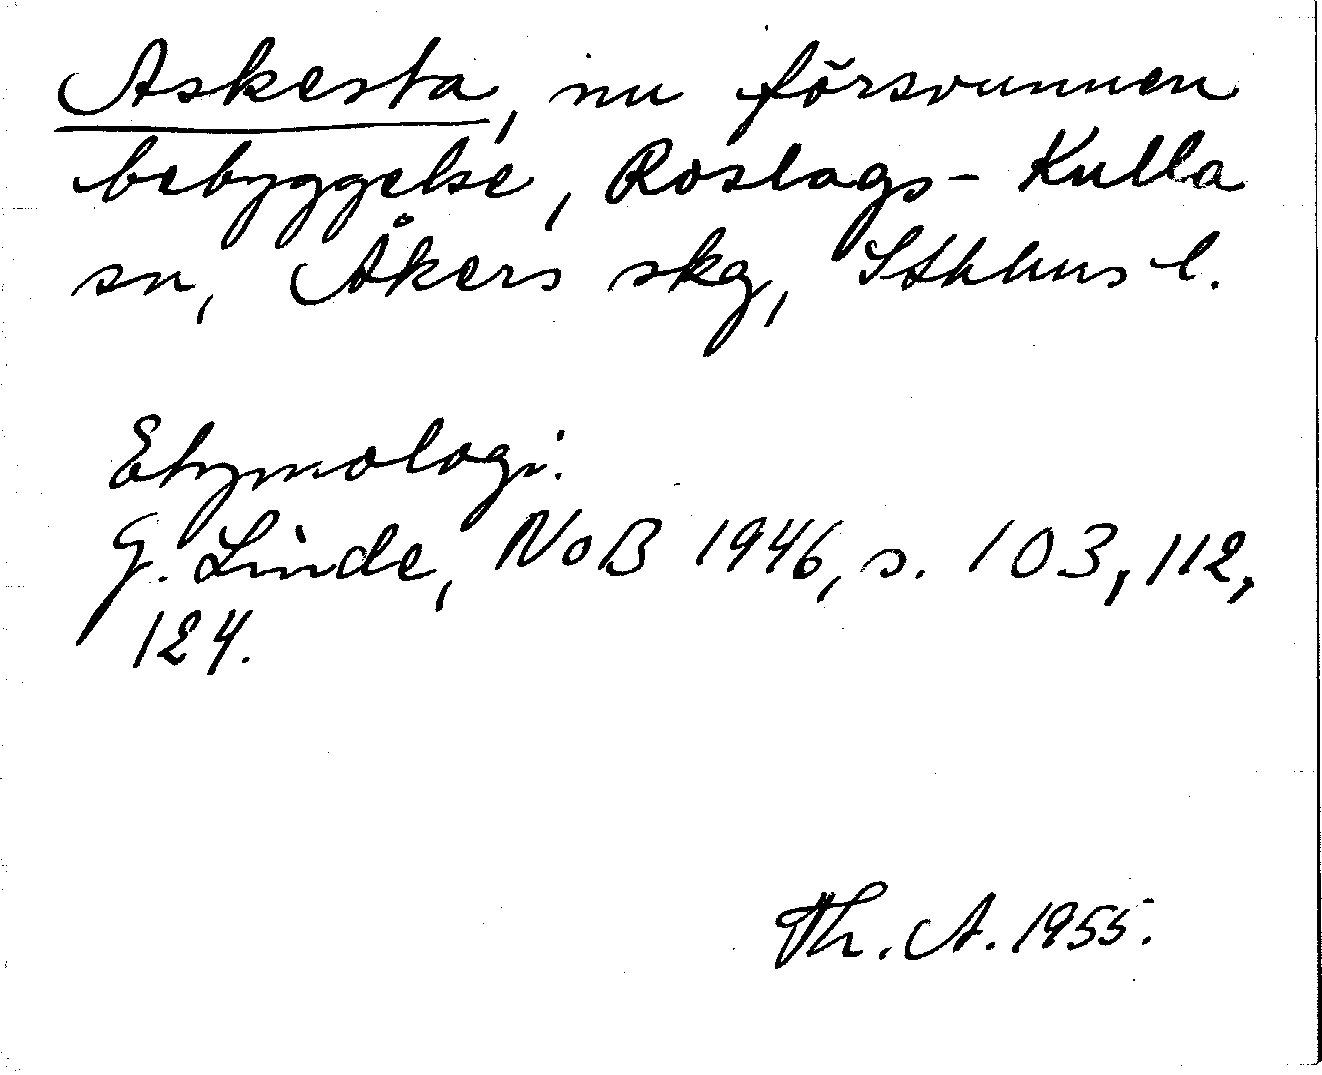 Askesta, nu försvunnen
bebyggelse, Roslags-Kulla
sn, Åkers skg, Sthlms l.
Etymologi.
G. Linde, NoB 1946, s. 103, 112,
124.
Th. A. 1955.